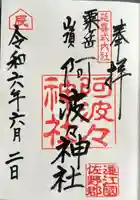 奉拝
延喜式内社
粟ヶ岳
山頂
阿波々神社
阿波々神社
辰
遠江國
佐野郡
令和六年六月二日